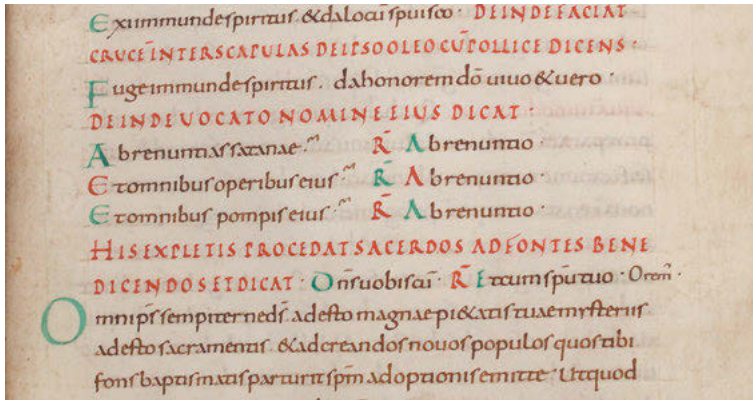 Exi immunde spiritus · & da locū spui sc̄o · DEINDE FACIAT
CRUCĒ INTER SCAPULAS DE IPSO OLEO CŪ POLLICE DICENS ·
Fuge immunde spiritus · da honorem dō uiuo & uero ·
DEINDE VOCATO NOMINE EIUS DICAT ·
Abrenuntias satanae · R̄ Abrenuntio ·
Et omnibus operibus eius · R̄ Abrenuntio ·
Et omnibus pompis eius · R̄ Abrenuntio ·
HIS EXPLETIS PROCEDAT SACERDOS AD FONTES BENE
DICENDOS ET DICAT · Dn̄s uobiscū · R̄ Et cum spū tuo · Orem̄ ·
Omnip̄s sempiterne ds̄ · adesto magnae pi&atis tuae mysteriis
adesto sacramentis · & ad creandos nouos populos quos tibi
fons baptismatis parturit sp̄m adoptionis emitte · Ut quod